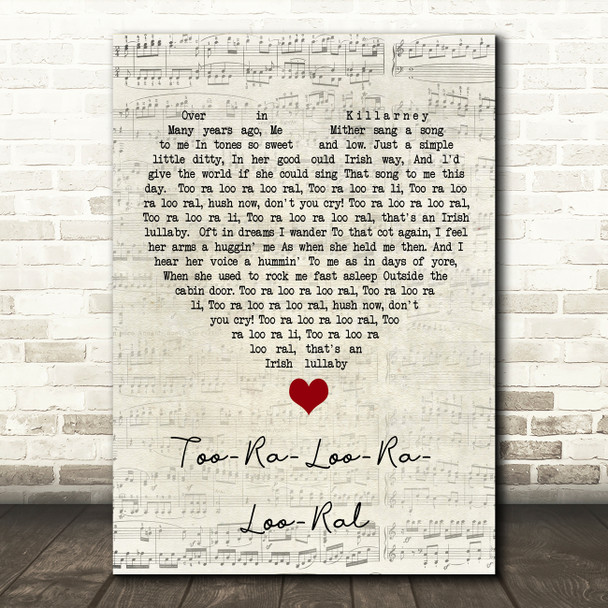 Over in Killarney
Many years ago, Me Mither sang a song
to me In tones so sweet and low. Just a simple
little ditty, In her good ould Irish way, And I'd
give the world if she could sing That song to me this
day. Too ra loo ra loo ral, Too ra loo ra li, Too ra loo
ra loo ral, hush now, don't you cry! Too ra loo ra loo ral,
Too ra loo ra li, Too ra loo ra loo ral, that's an Irish
lullaby. Oft in dreams I wander To that cot again, I feel
her arms a huggin' me As when she held me then. And I
hear her voice a hummin' To me as in days of yore,
When she used to rock me fast asleep Outside the
cabin door. Too ra loo ra loo ral, Too ra loo ra
li, Too ra loo ra loo ral, hush now, don't
you cry! Too ra loo ra loo ral, Too
ra loo ra li, Too ra loo ra
loo ral, that's an
Irish lullaby
Too-Ra-Loo-Ra-
Loo-Ral